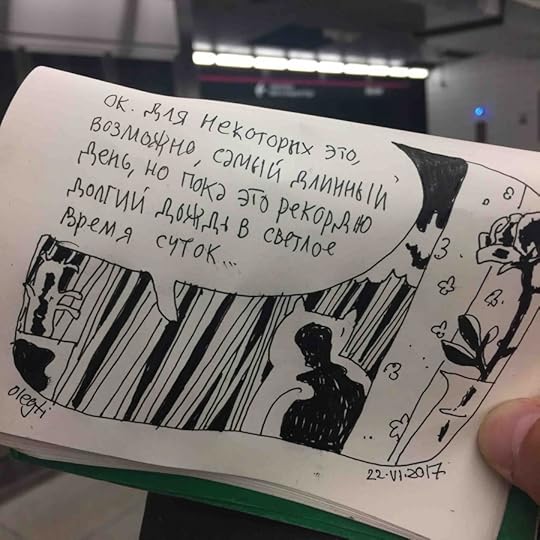 ОК. ДЛЯ НЕКОТОРЫХ ЭТО,
ВОЗМОЖНО, САМЫЙ ДЛИННЫЙ
ДЕНЬ, НО ПОКА ЭТО РЕКОРДНО
ДОЛГИЙ ДОЖДЬ В СВЕТЛОЕ
ВРЕМЯ СУТОК...
olegti
22.VI.2017